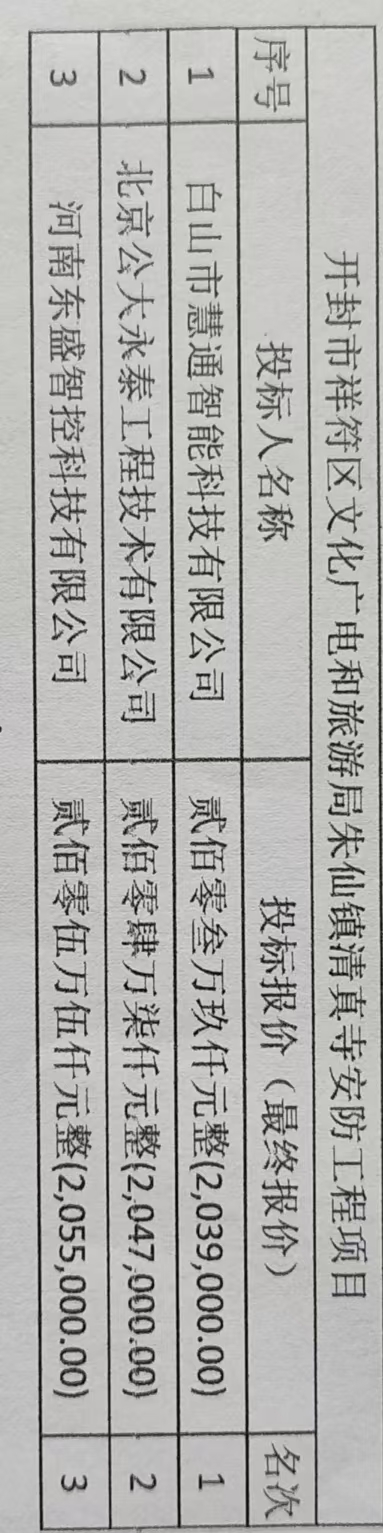 开封市祥符区文化广电和旅游局朱仙镇清真寺安防工程项目
序号 投标人名称 投标报价（最终报价） 名次
1 白山市慧通智能科技有限公司 贰佰零叁万玖仟元整(2,039,000.00) 1
2 北京公大永泰工程技术有限公司 贰佰零肆万柒仟元整(2,047,000.00) 2
3 河南东盛智控科技有限公司 贰佰零伍万伍仟元整(2,055,000.00) 3